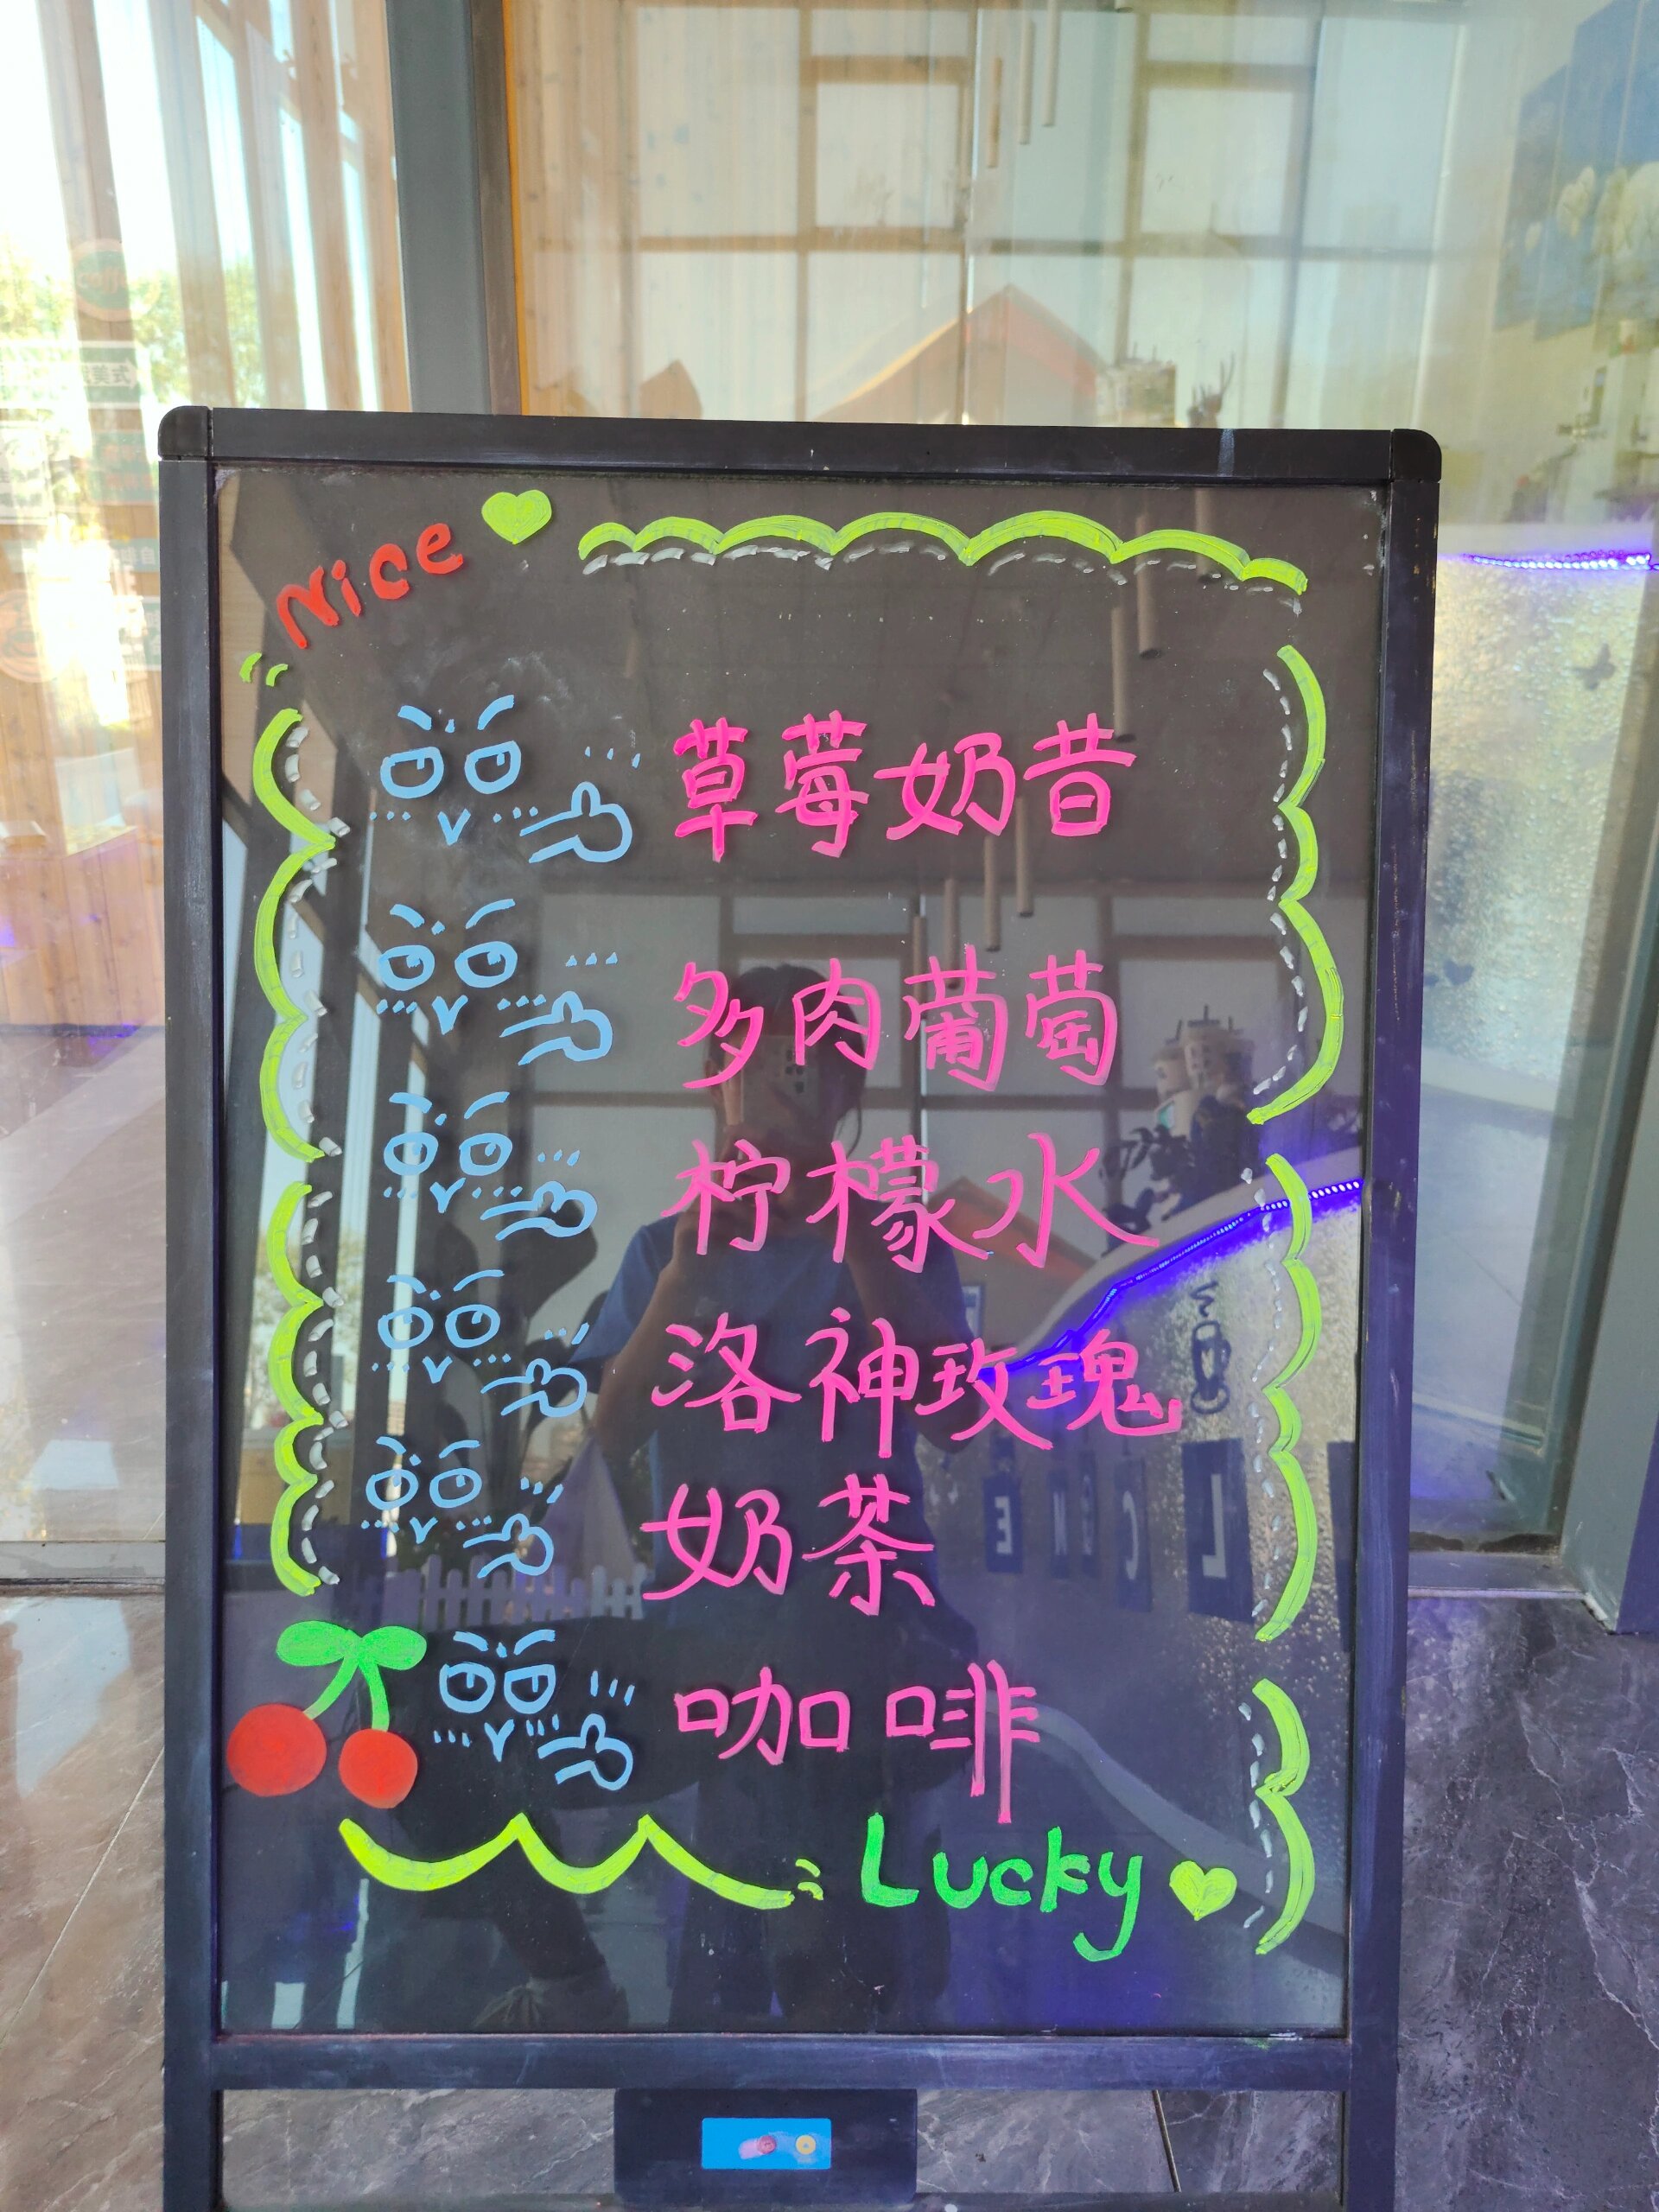 Nice
草莓奶昔
多肉葡萄
柠檬水
洛神玫瑰
奶茶
咖啡
Lucky